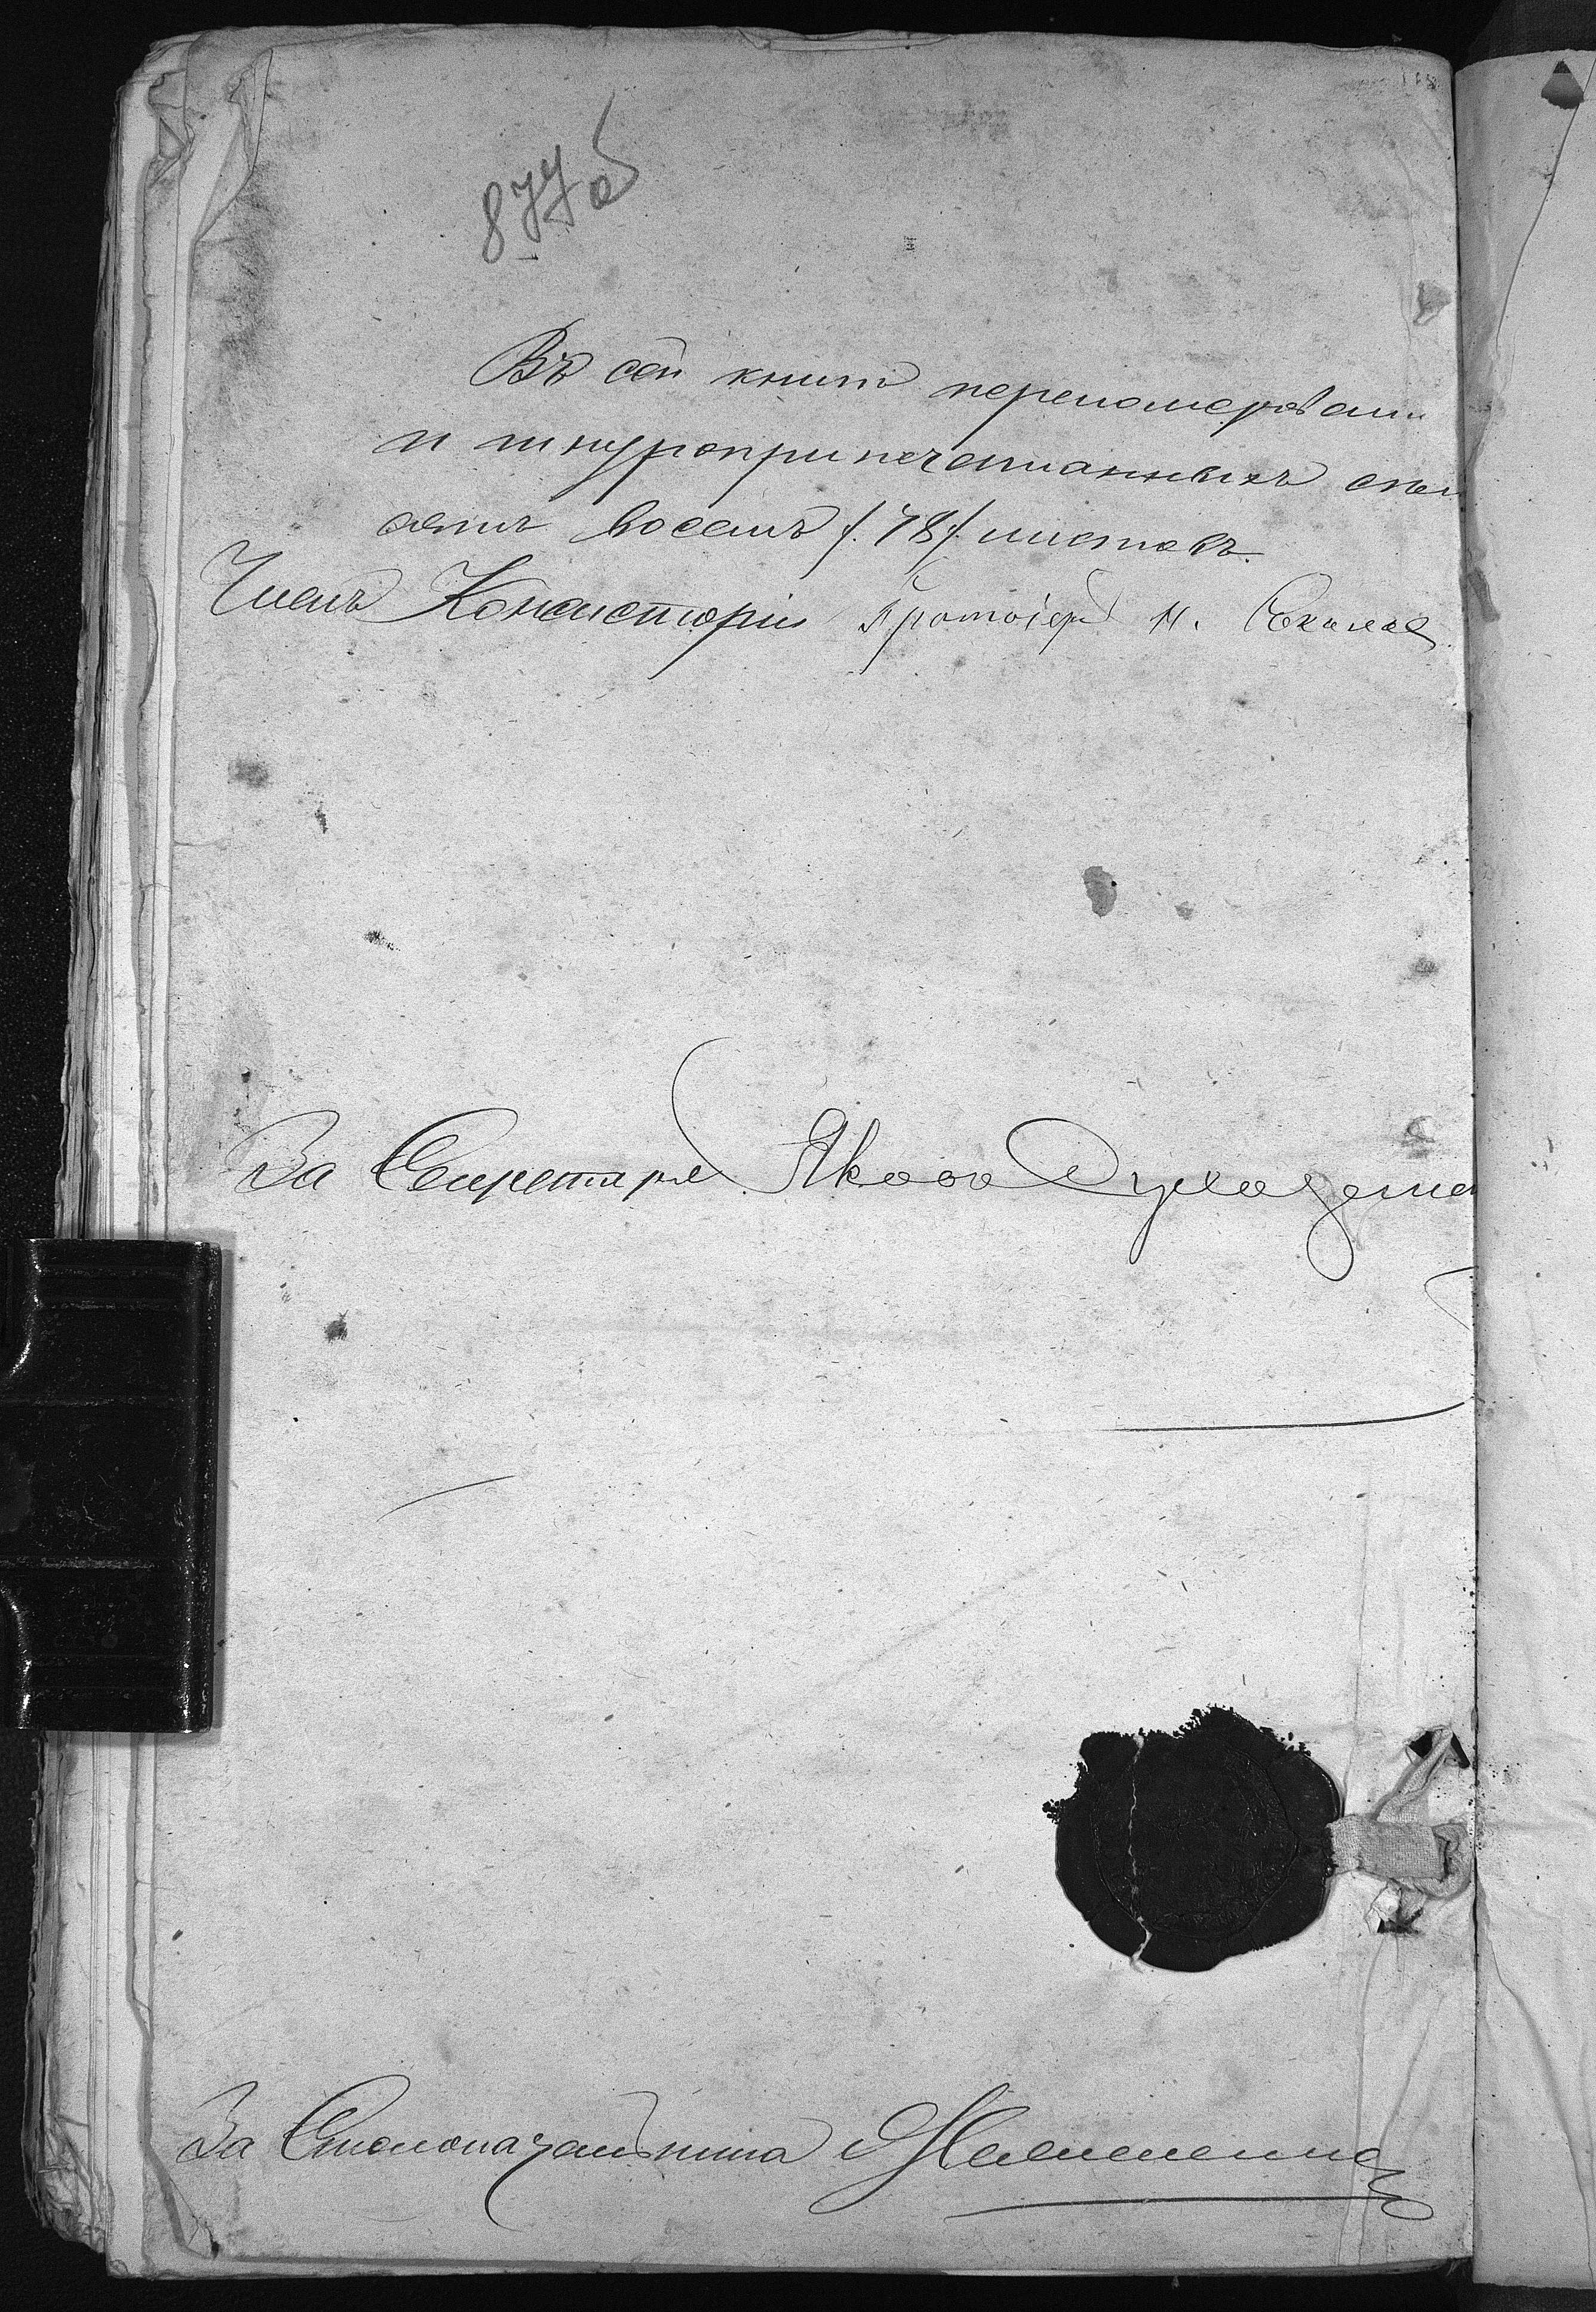 877 об
Въ сей книгѣ перенумерован
и шнуроприпечатанныхъ семь
десятъ восемь /:78:/ листовъ.
Членъ Консисторіи Протоіер Н. Соколов
За Секретаря Яковъ
За Столоначальника